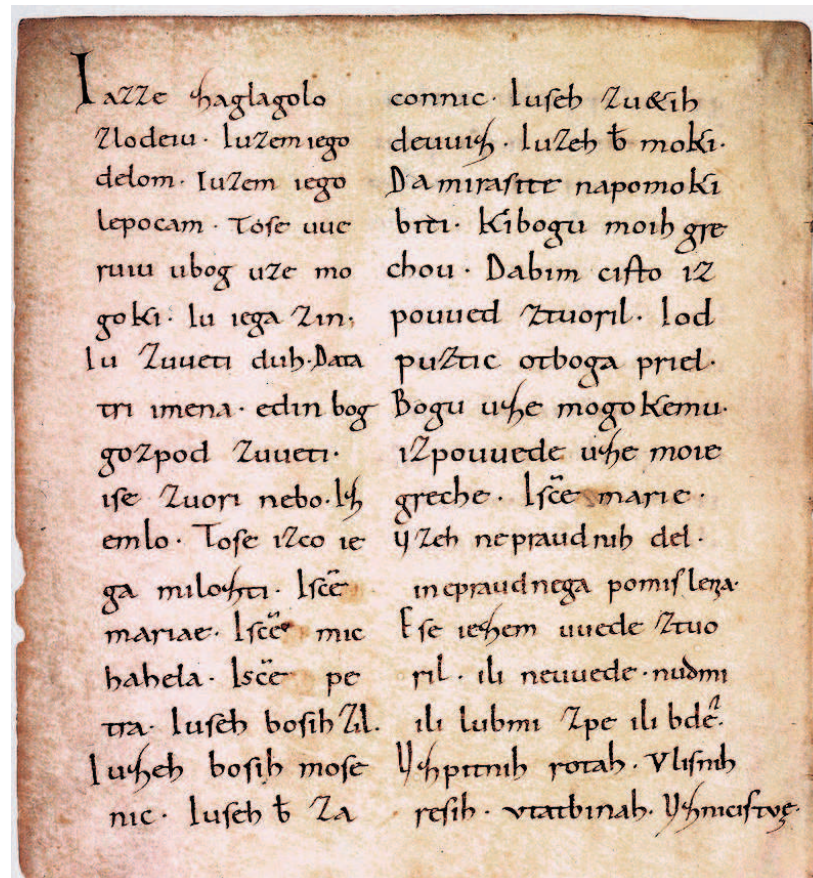 Iazze zaglagolo
zlodeiu · Iuzem iego
delom · Iuzem iego
lepocam · Toſe uue
ruiu ubog uze mo
goki · Iu iega zin ·
Iu zuueti duh · Data
tri imena · edin bog
gozpod zuueti ·
iſe zuori nebo · Iz
emlo · Toſe izco ie
ga milozti · Iſcē
mariae · Iſcē mic
hahela · Iſcē pe
tra · Iuſeh boſih zil ·
Iuzeh boſih moſe
nic · Iuſeh b̄ za
connic · Iuſeh zu&ih
deuuiz · Iuzeh b̄ moki ·
Da miraſite napomoki
biti · Kibogu moih gre
chou · Dabim ciſto iz
pouued ztuoril · Iod
puztic otboga priel ·
Bogu uze mogokemu ·
izpouuede uze moie
greche · Iſcē marie ·
Vzeh nepraudnih del ·
inepraudnega pomiſlenia ·
Eſe iezem uuede ztuo
ril · ili neuuede · nudmi
ili lubmi zpe ili bdē ·
Vzpitnih rotah · Vliſnih
reſih · vtatbinah · Vzniciſtve ·